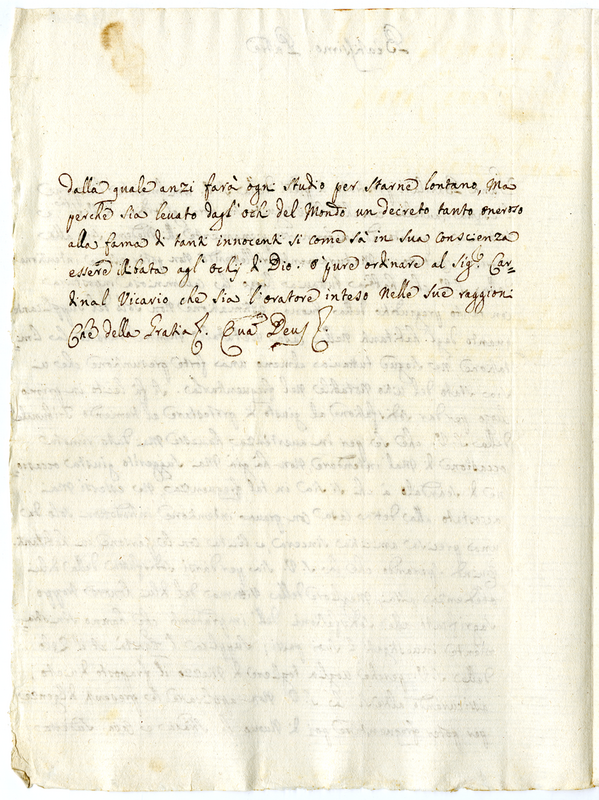 dalla quale anzi farà ogni studio per starne lontano, Ma
perche sia levato dagl'ochi del Mondo un decreto tanto oneroso
alla fama di tanti innocenti si come sà in sua conscienza
essere illibata agl'ochij di Dio. ò pure ordinare al Sigr. Car=
dinal Vicario che sia l'oratore inteso nelle sue raggioni
Che della Gratia Quam Deus